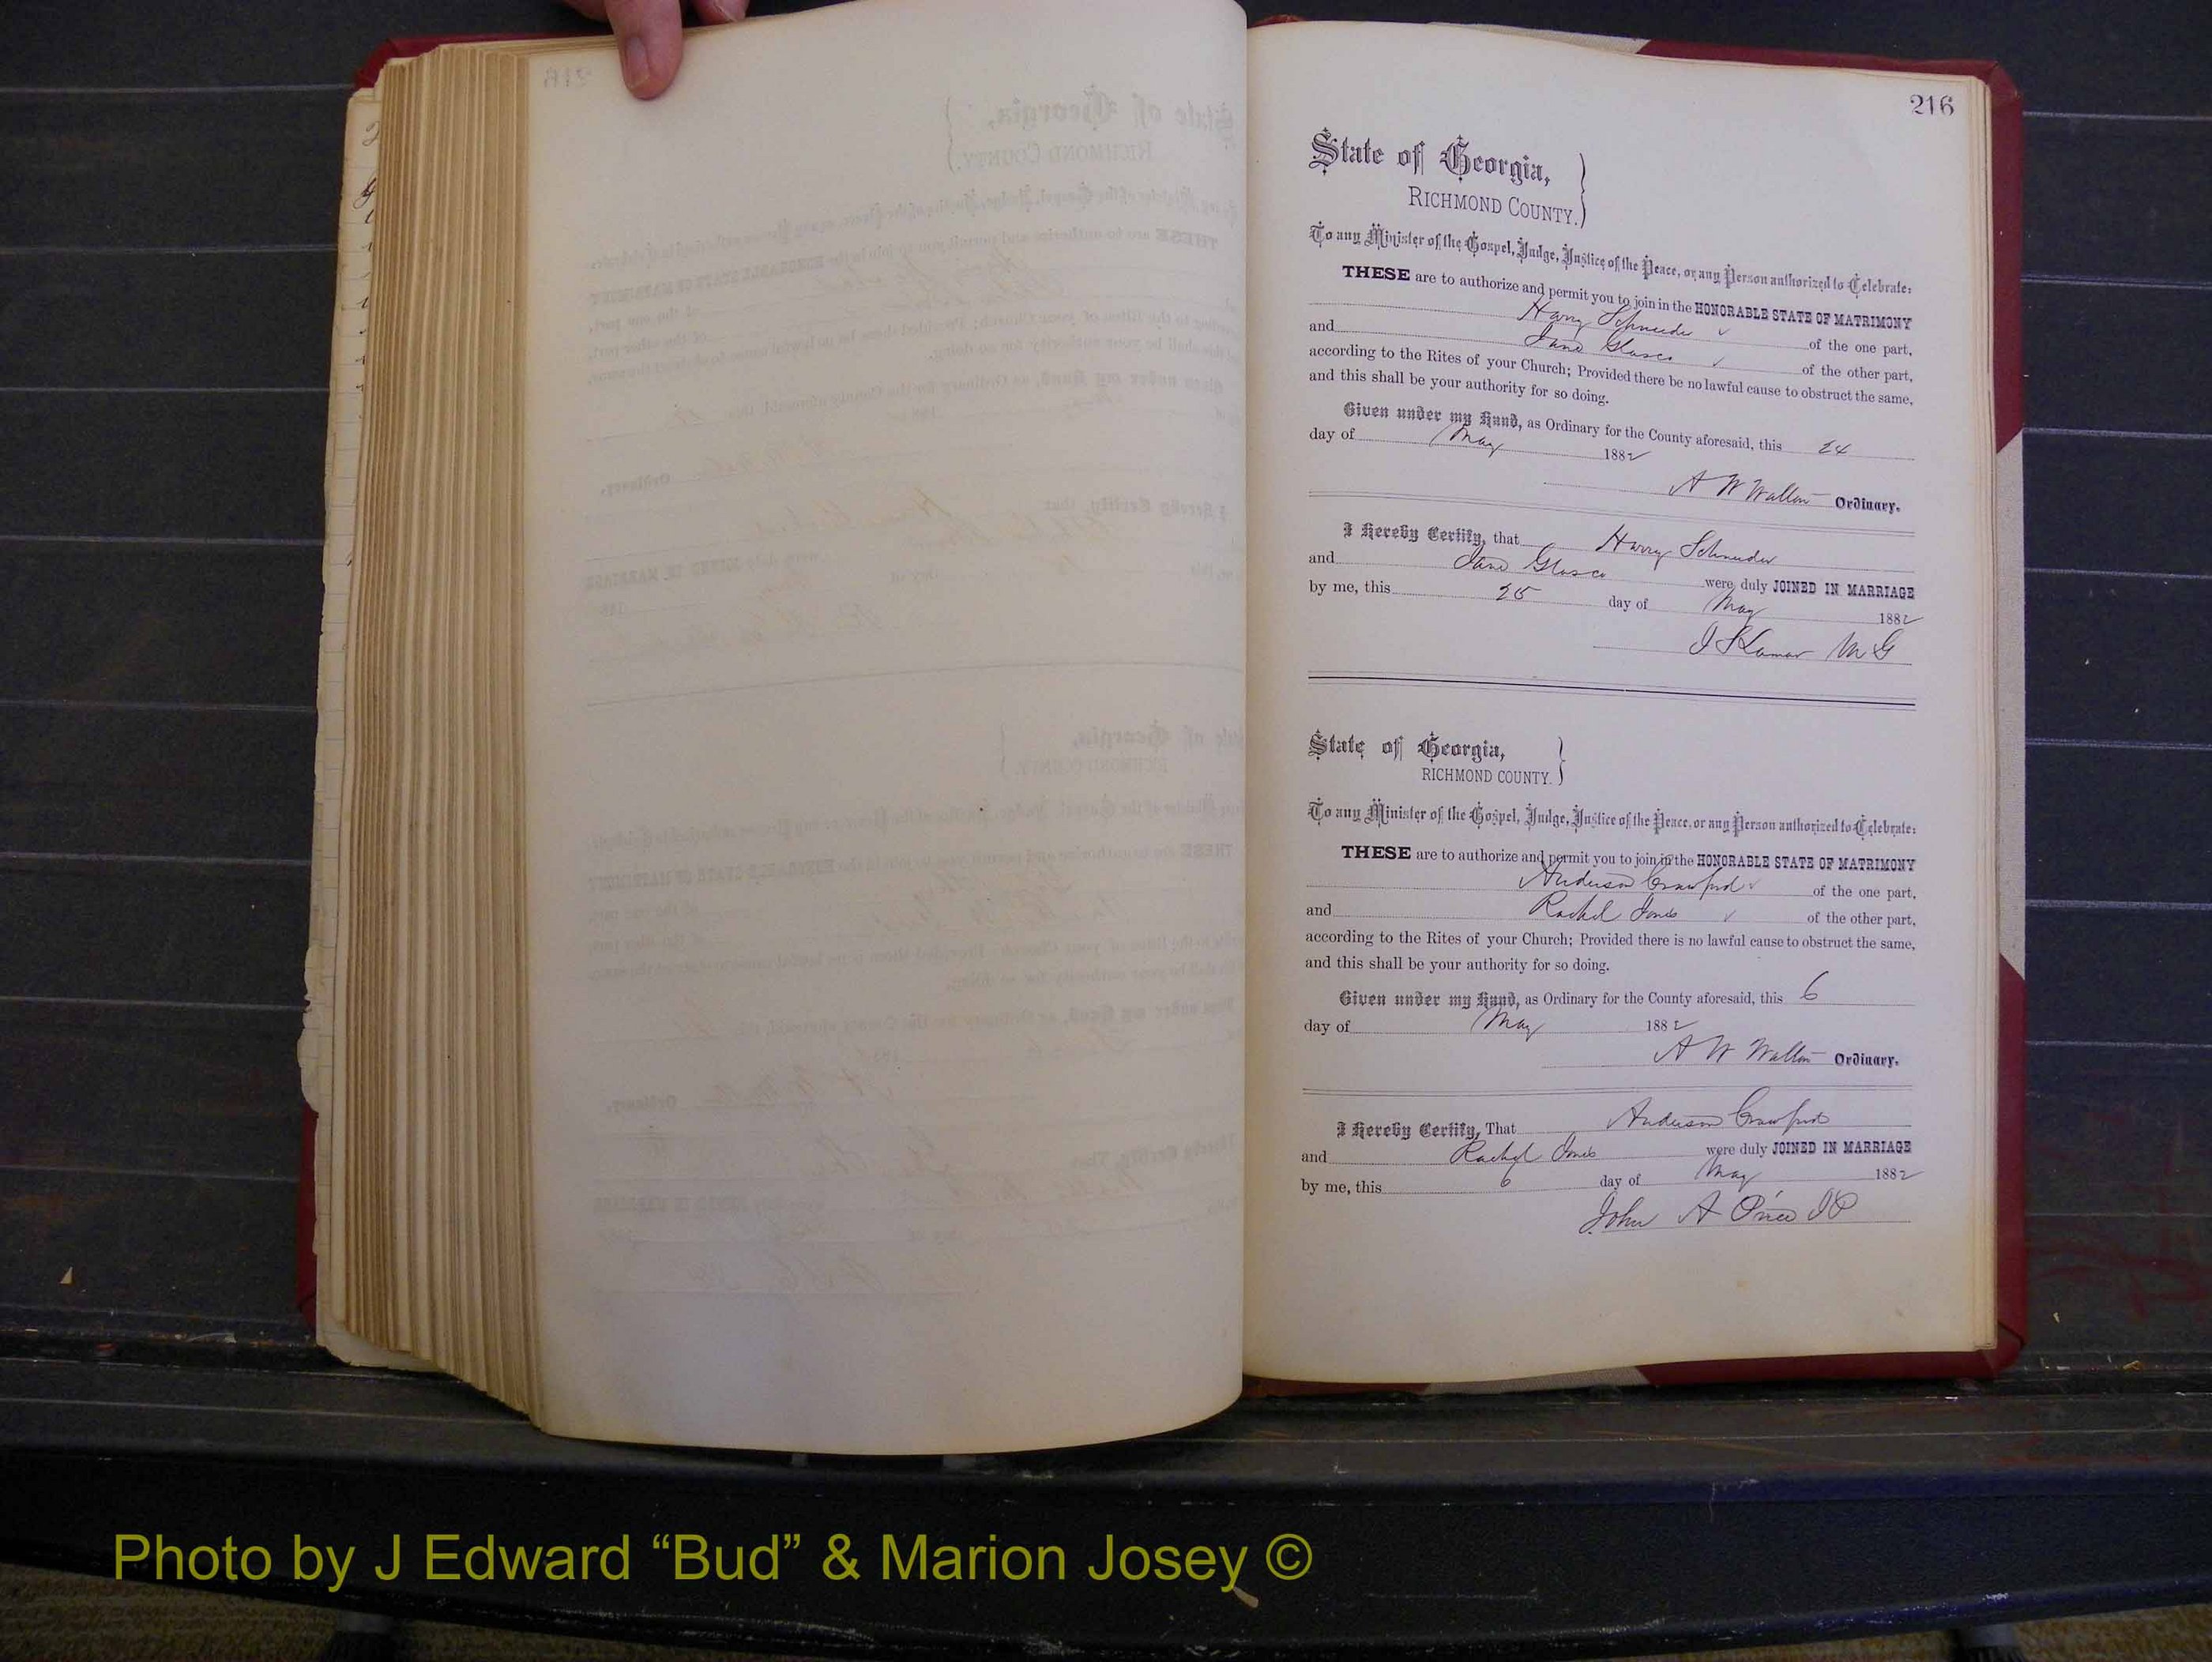 216
State of Georgia,
RICHMOND COUNTY.
To any Minister of the Gospel, Judge, Justice of the Peace, or any Person authorized to Celebrate:
THESE are to authorize and permit you to join in the HONORABLE STATE OF MATRIMONY
Harry Schneider of the one part,
and Jane Glasco of the other part,
according to the Rites of your Church; Provided there be no lawful cause to obstruct the same,
and this shall be your authority for so doing.
Given under my Hand, as Ordinary for the County aforesaid, this 24
day of May 1882
A W Walton Ordinary.
I Hereby Certify, that Harry Schneider
and Jane Glasco were duly JOINED IN MARRIAGE
by me, this 25 day of May 1882
Lamar M G
State of Georgia,
RICHMOND COUNTY.
To any Minister of the Gospel, Judge, Justice of the Peace, or any Person authorized to Celebrate:
THESE are to authorize and permit you to join in the HONORABLE STATE OF MATRIMONY
Anderson Crawford of the one part,
and Rachel Jones of the other part,
according to the Rites of your Church; Provided there is no lawful cause to obstruct the same,
and this shall be your authority for so doing.
Given under my Hand, as Ordinary for the County aforesaid, this 6
day of May 1882
A W Walton Ordinary.
I Hereby Certify, That Anderson Crawford
and Rachel Jones were duly JOINED IN MARRIAGE
by me, this 6 day of May 1882
John A
Photo by J Edward “Bud” & Marion Josey ©